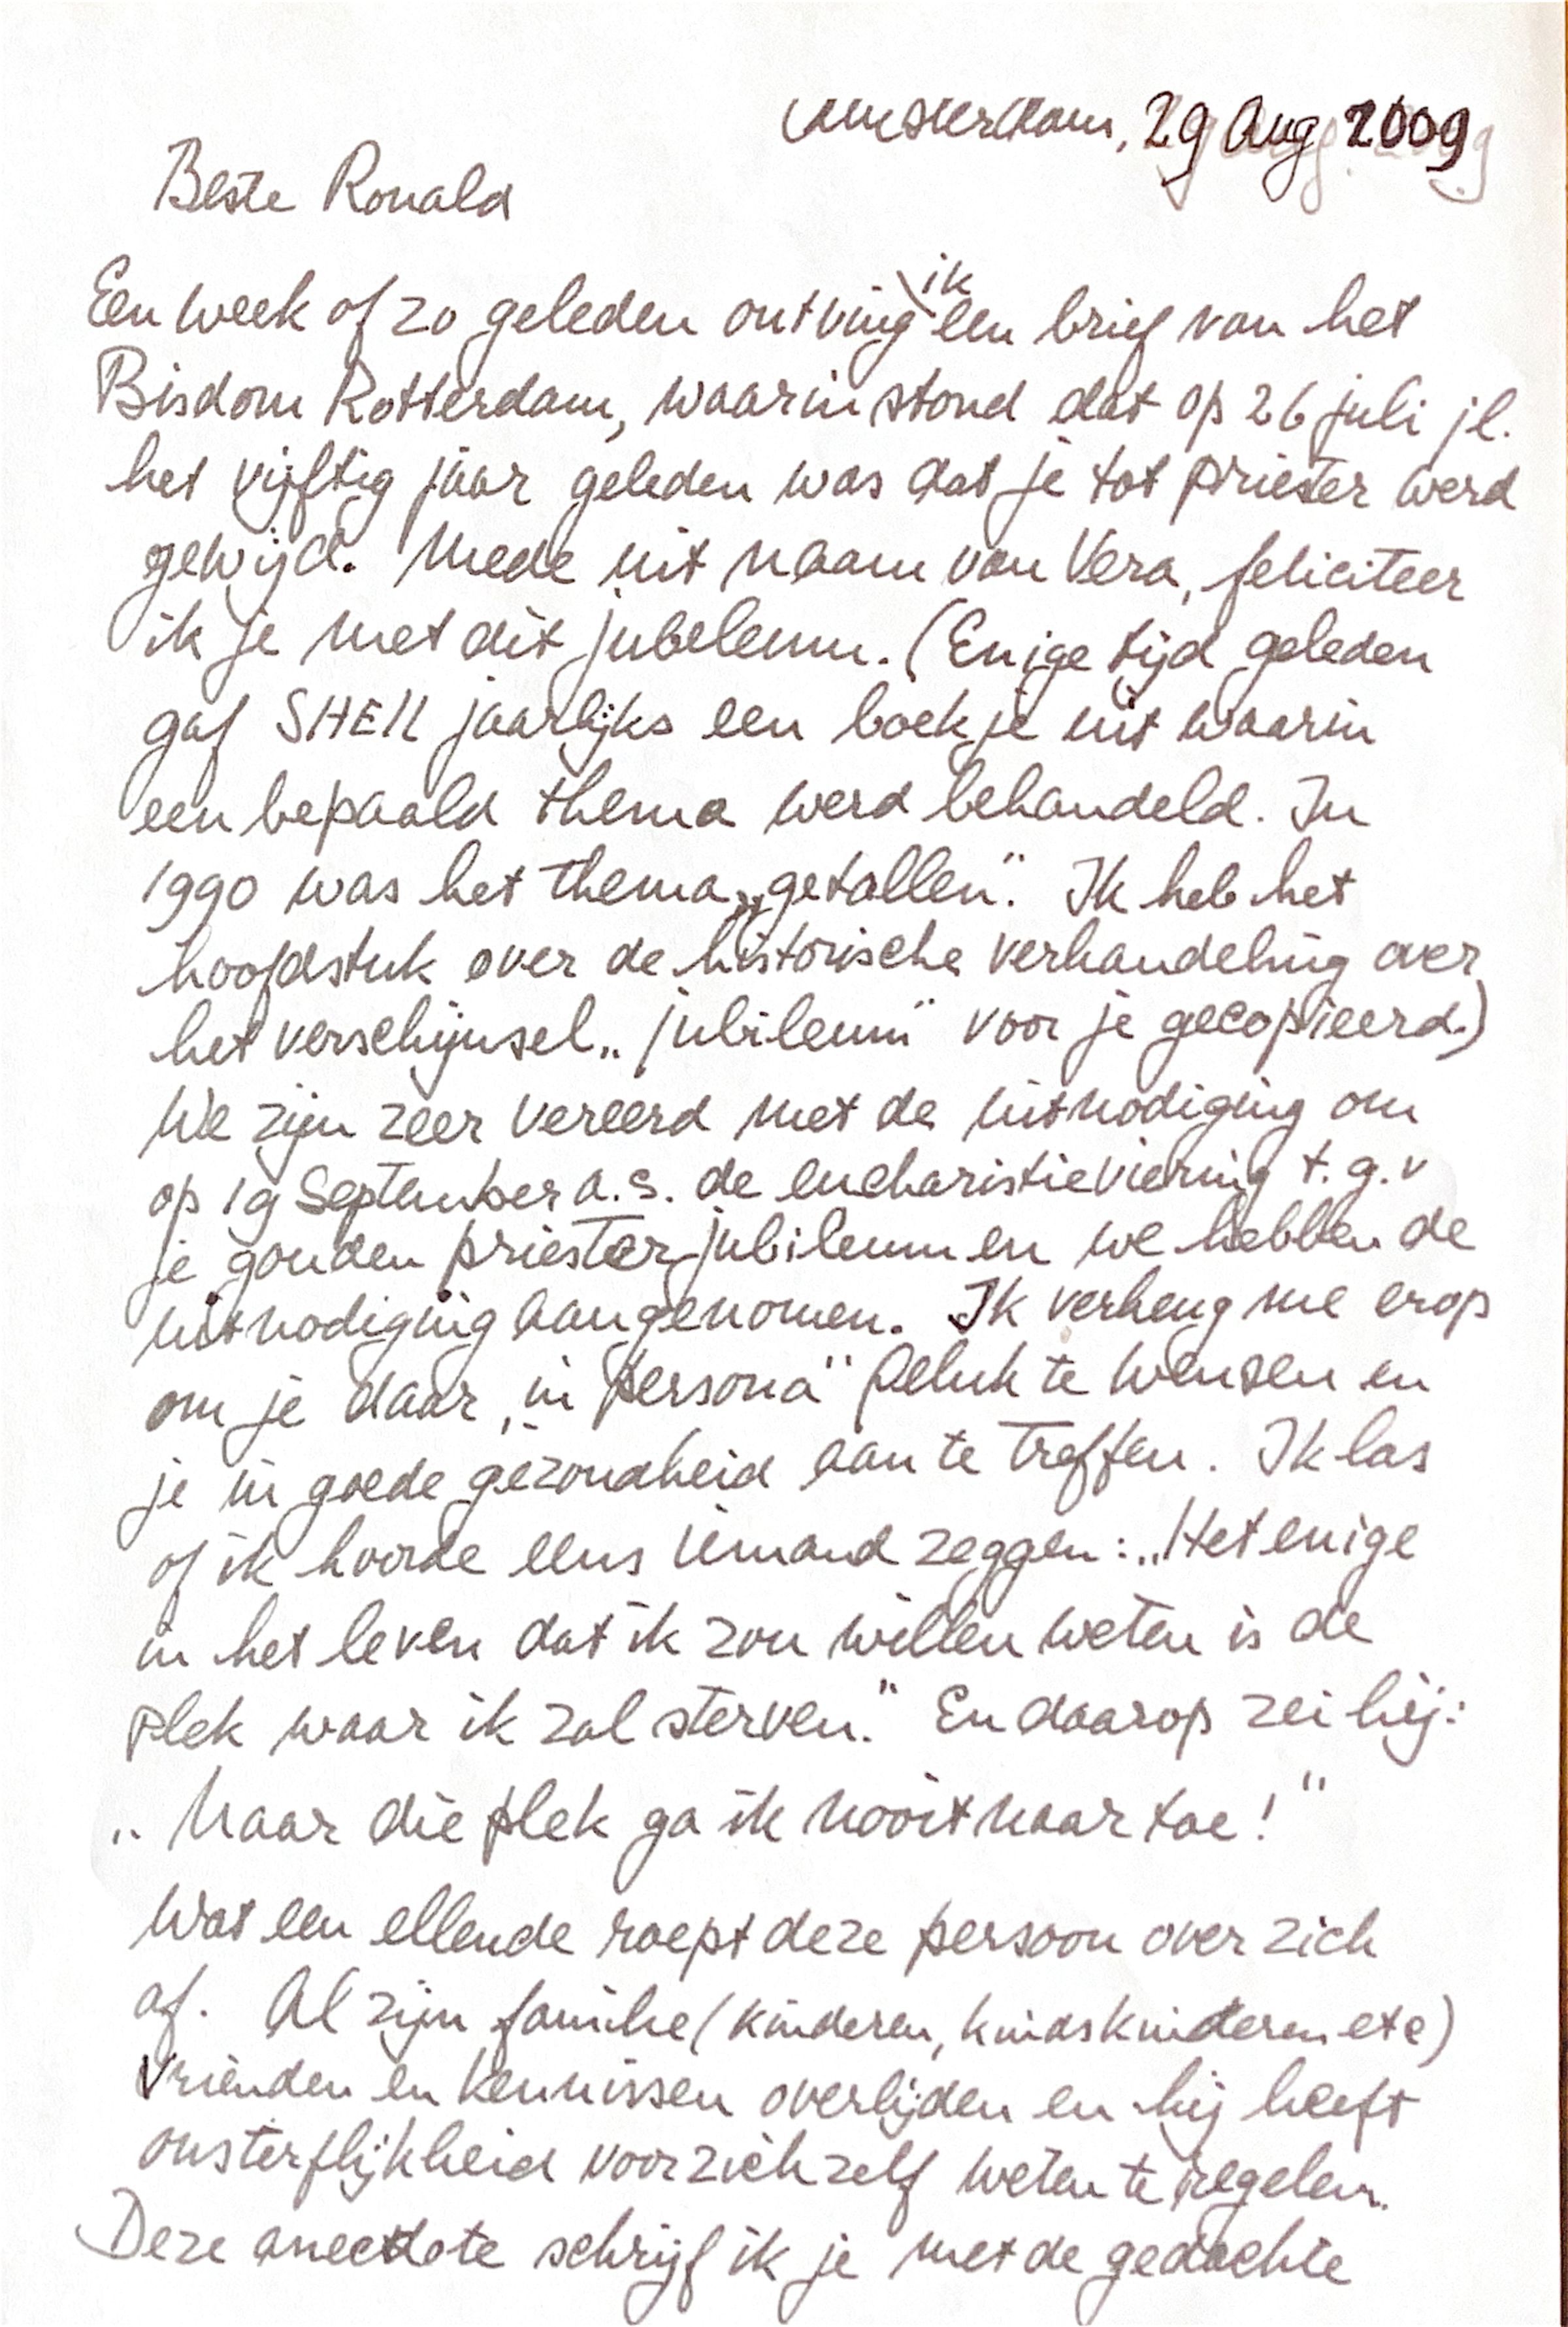 Amsterdam, 29 Aug 2009
Beste Ronald
Een week of zo geleden ontving ik een brief van het
Bisdom Rotterdam, waarin stond dat op 26 juli jl.
het vijftig jaar geleden was dat je tot priester werd
gewijd. Mede uit naam van Vera, feliciteer
ik je met dit jubeleum. (Enige tijd geleden
gaf SHEll jaarlijks een boekje uit waarin
een bepaald thema werd behandeld. In
1990 was het thema „getallen”. Ik heb het
hoofdstuk over de historische verhandeling over
het verschijnsel „jubileum” voor je gecopieerd.)
We zijn zeer vereerd met de uitnodiging om
op 19 September a.s. de eucharistieviering t.g.v
je gouden priesterjubileum en we hebben de
uitnodiging aangenomen. Ik verheug me erop
om je daar „in persona” geluk te wensen en
je in goede gezondheid aan te treffen. Ik las
of ik hoorde eens iemand zeggen: „Het enige
in het leven dat ik zou willen weten is de
plek waar ik zal sterven.” En daarop zei hij:
„Naar die plek ga ik nooit naar toe!”
Wat een ellende roept deze persoon over zich
af. Al zijn familie (kinderen, kindskinderen etc)
vrienden en kennissen overlijden en hij heeft
onsterflijkheid voor zichzelf weten te regelen.
Deze anecdote schrijf ik je met de gedachte